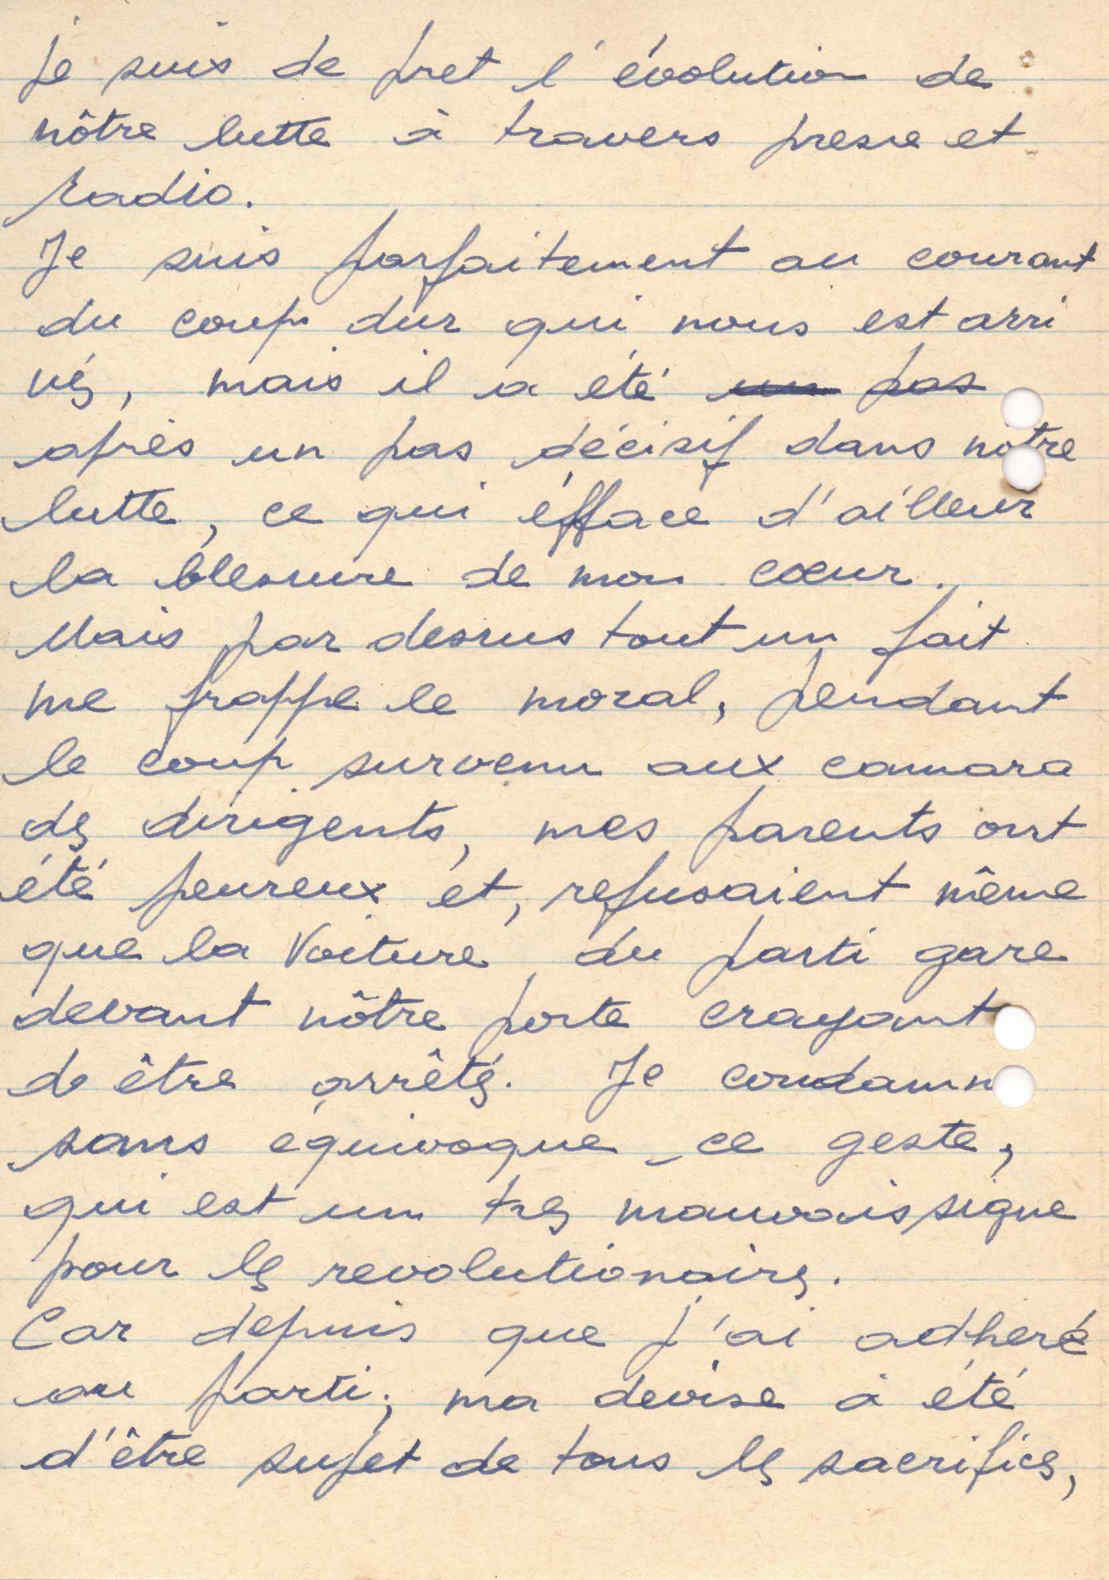 je suis de pret l'évolution de
nôtre lutte à travers presse et
radio.
Je suis parfaitement au courant
du coup dur qui nous est arri
vés, mais il a été un pas
après un pas décisif dans notre
lutte, ce qui éfface d'ailleur
la blessure de mon cœur.
Mais par dessus tout un fait
me frappe le moral, pendant
le coup survenu aux camara
des dirigents, mes parents ont
été peureux et, refusaient même
que la Voiture du parti gare
devant nôtre porte crayant
de être arrêtés. Je condamn
sans équivoque ce geste,
qui est un tres mauvais signe
pour les revolutionaires.
Car depuis que j'ai adheré
au parti, ma devise à été
d'être sujet de tous les sacrifices,